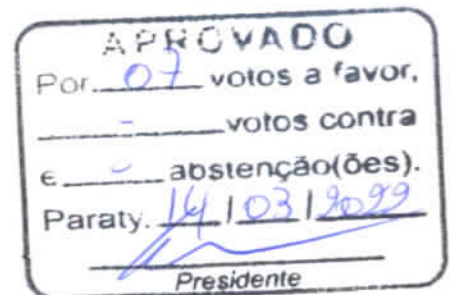 APROVADO
Por 07 votos a favor,
- votos contra
e - abstenção(ões).
Paraty. 14 / 03 / 2022
Presidente